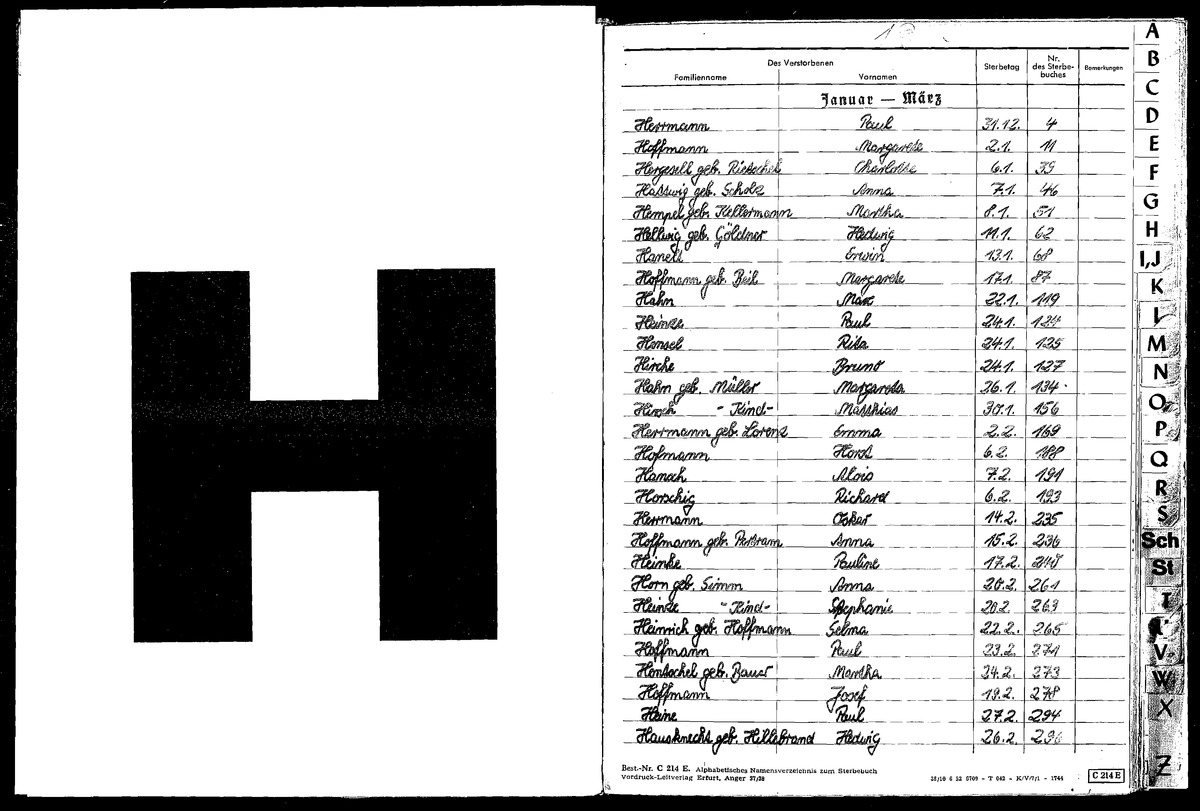 H
Des Verstorbenen
Familienname Vornamen Sterbetag Nr. des Sterbe-buches Bemerkungen
Januar — März
Herrmann Paul 31.12. 4
Hoffmann Margarete 2.1. 11
Hergesell geb. Rietschel Charlotte 6.1. 39
geb. Scholz Anna 7.1. 46
Hempel geb. Kellermann Martha 8.1. 51
Hellwig geb. Göldner Hedwig 11.1. 62
Erwin 13.1. 68
Hoffmann geb. Beil Margarete 17.1. 87
Hahn Max 22.1. 119
Heinze Paul 24.1. 124
Hensel Rita 24.1. 125
Hirche Bruno 24.1. 127
Hahn geb. Müller Margareta 26.1. 134
Hirsch - Kind - Matthias 30.1. 156
Herrmann geb. Lorenz Emma 2.2. 169
Hofmann Horst 6.2. 188
Hanach Alois 7.2. 191
Horschig Richard 6.2. 193
Herrmann Oskar 14.2. 235
Hoffmann geb. Anna 15.2. 236
Heinke Pauline 17.2.
Horn geb. Simm Anna 20.2. 261
Heinze - Kind - Stephanie 20.2. 263
Heinrich geb. Hoffmann Selma 22.2. 265
Hoffmann Paul 23.2. 271
Hentschel geb. Bauer Martha 24.2. 273
Hoffmann Josef 19.2. 278
Heine Paul 27.2. 294
Hausknecht geb. Hillebrand Hedwig 26.2. 296
Best.-Nr. C 214 E. Alphabetisches Namensverzeichnis zum Sterbebuch
Vordruck-Leitverlag Erfurt, Anger 37/38
C 214 E
A
B
C
D
E
F
G
H
I,J
K
L
M
N
O
P
Q
R
S
Sch
St
T
V
W
X
Z